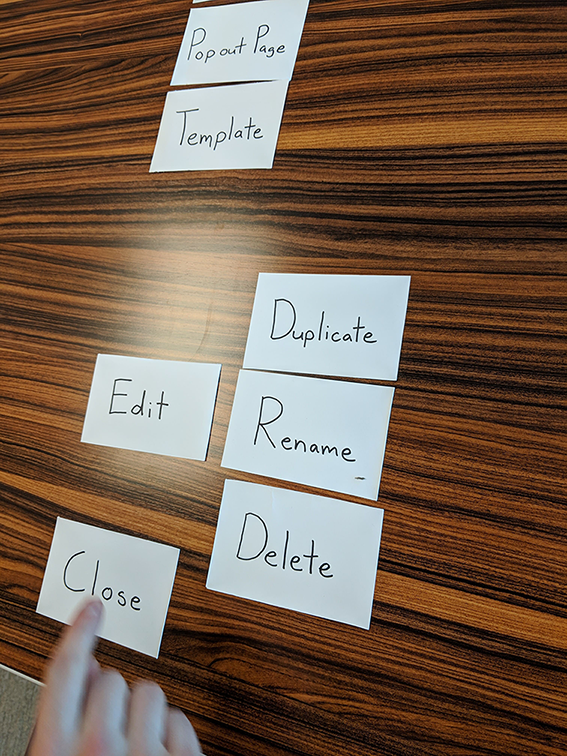 Pop out Page
Template
Duplicate
Edit
Rename
Delete
Close